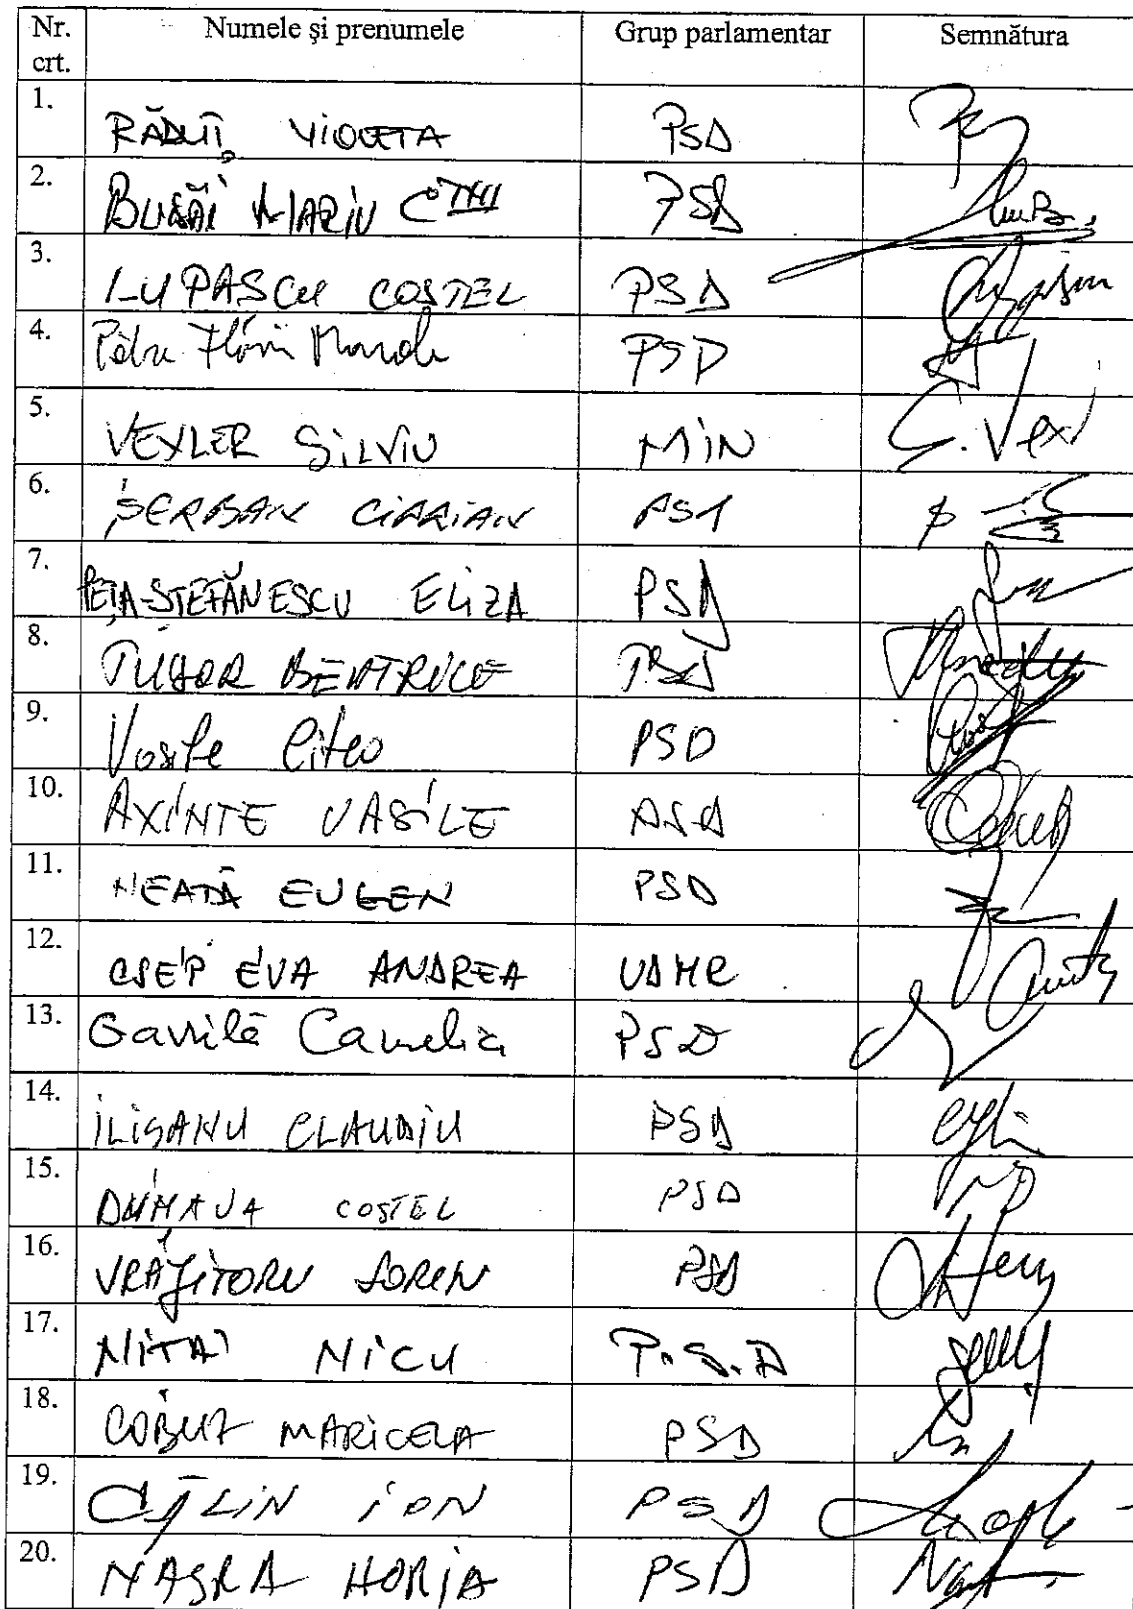 Nr. crt. Numele şi prenumele Grup parlamentar Semnătura
1. RĂDUȚ VIOLETA PSD
2. MARIN PSD
3. LUPASCU COSTEL PSD
4. Petre Florin Manole PSD
5. VEXLER SILVIU MIN S. Vex
6. ȘERBAN CIPRIAN PSD
7. PEȚA-ȘTEFĂNESCU ELIZA PSD
8. TUDOR BEATRICE PSD
9. Vasile PSD
10. AXINTE VASILE PSD
11. NEATĂ EUGEN PSD
12. CSÉP ÉVA ANDREA UDMR
13. Gavrilă Camelia PSD
14. ILIȘANU CLAUDIU PSD
15. DUNAVA COSTEL PSD
16. VRĂJITORU SORIN PSD
17. NIȚĂ NICU P.S.D
18. COBUZ MARICELA PSD
19. CĂLIN ION PSD
20. NASRA HORIA PSD